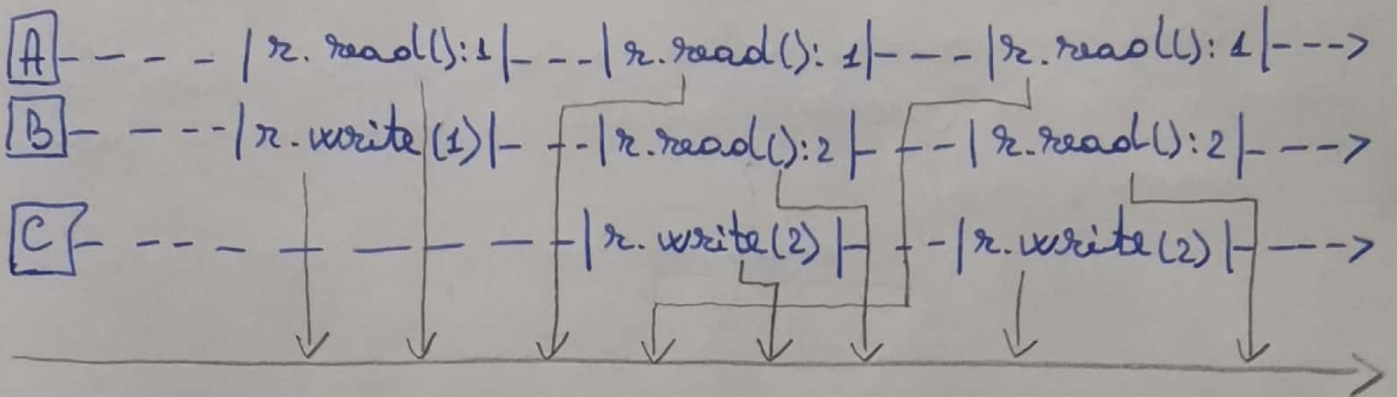 A - - - - |r.read():1|- - -|r.read(): 1|- - - -|r.read(): 1|- - ->
B - - - - -|r.write(1)|- - -|r.read():2|- - - -|r.read():2|- - ->
C - - - - - - - - -|r.write(2)|- - - -|r.write(2)|- - - ->